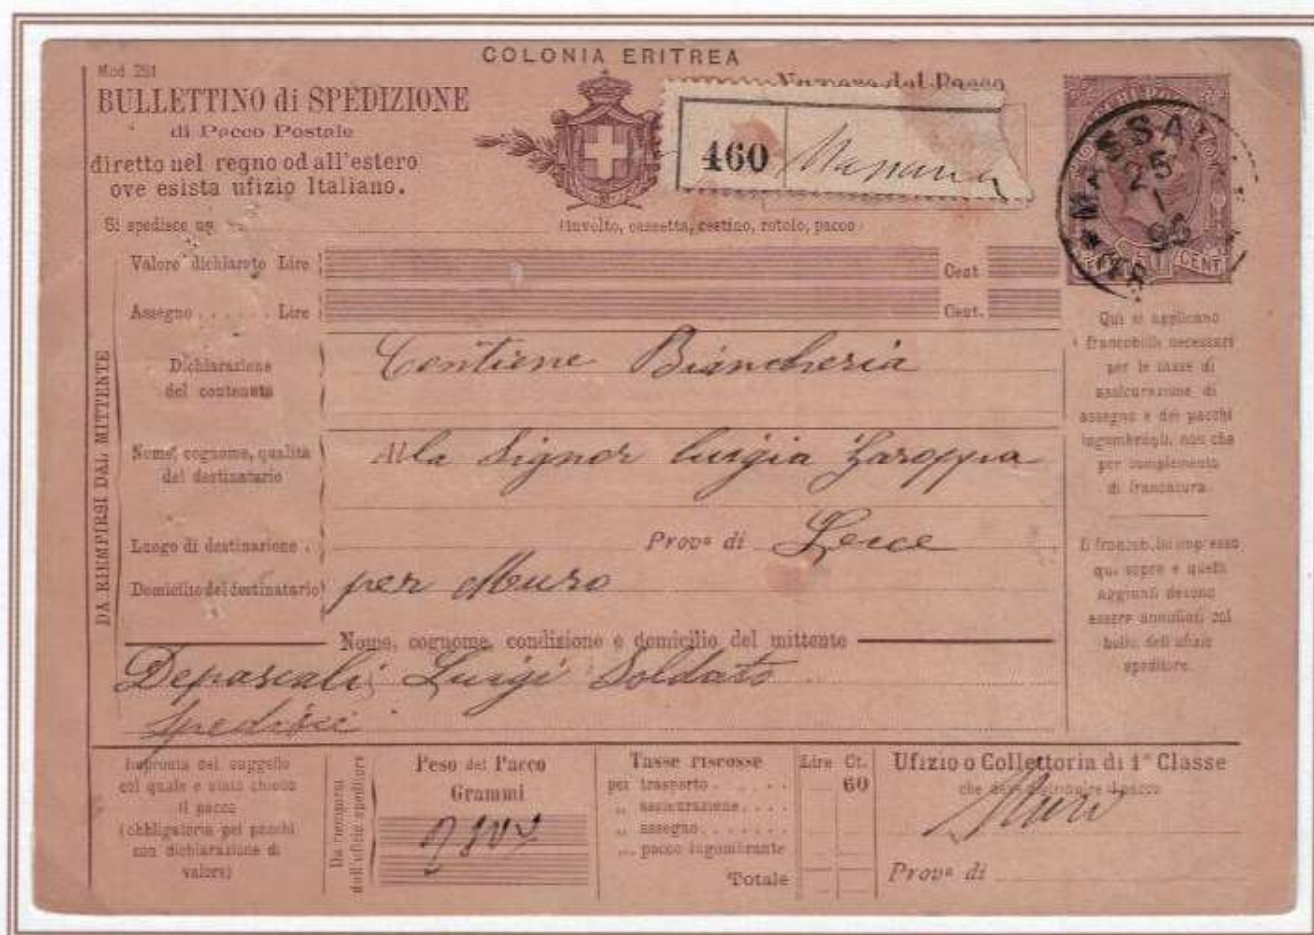 COLONIA ERITREA
Mod 251
BULLETTINO di SPEDIZIONE
di Pacco Postale
diretto nel regno od all'estero
ove esista ufizio Italiano.
Numero del Pacco
460 Massaua
MASSAUA
25
1
96
CENT
Si spedisce un
(involto, cassetta, cestino, rotolo, pacco)
DA RIEMPIRSI DAL MITTENTE
Valore dichiarato Lire Cent
Assegno . . . . . Lire Cent.
Dichiarazione
del contenuto
Contiene Biancheria
Nome, cognome, qualità
del destinatario
Alla Signor Luigia Zaroppia
Luogo di destinazione . Prova di Lecce
Domicilio del destinatario per Muro
Nome, cognome, condizione e domicilio del mittente
Depascali Luigi Soldato
spedisce
Qui si applicano
i francobolli necessari
per le tasse di
assicurazione di
assegno e dei pacchi
ingombranti, non che
per complemento
di francatura.
Il francob. lo impresso
qui sopra e quelli
aggiunti devono
essere annullati col
bollo dell ufizio
speditore.
Impronta del suggello
col quale è stato chiuso
il pacco
(obbligatoria pei pacchi
con dichiarazione di
valore)
Da riempirsi
dall'ufizio speditore
Peso del Pacco
Grammi
Tasse riscosse Lire Ct.
per trasporto . . . . . 60
„ assicurazione . . . .
„ assegno . . . . . . .
„ pacco ingombrante
Totale
Ufizio o Collettoria di 1ª Classe
che deve distribuire il pacco
Muro
Prova di